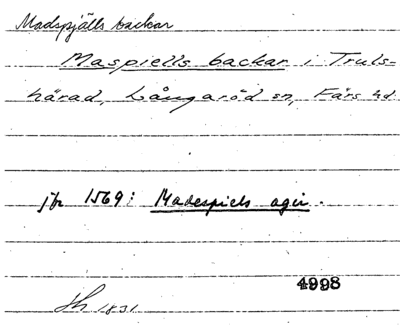 Madspjälls backar
Maspiells backar i Truls-
härad, Långaröd sn, Färs hd.
jfr 1569: Madespiels ager.
4998
Hh 1831